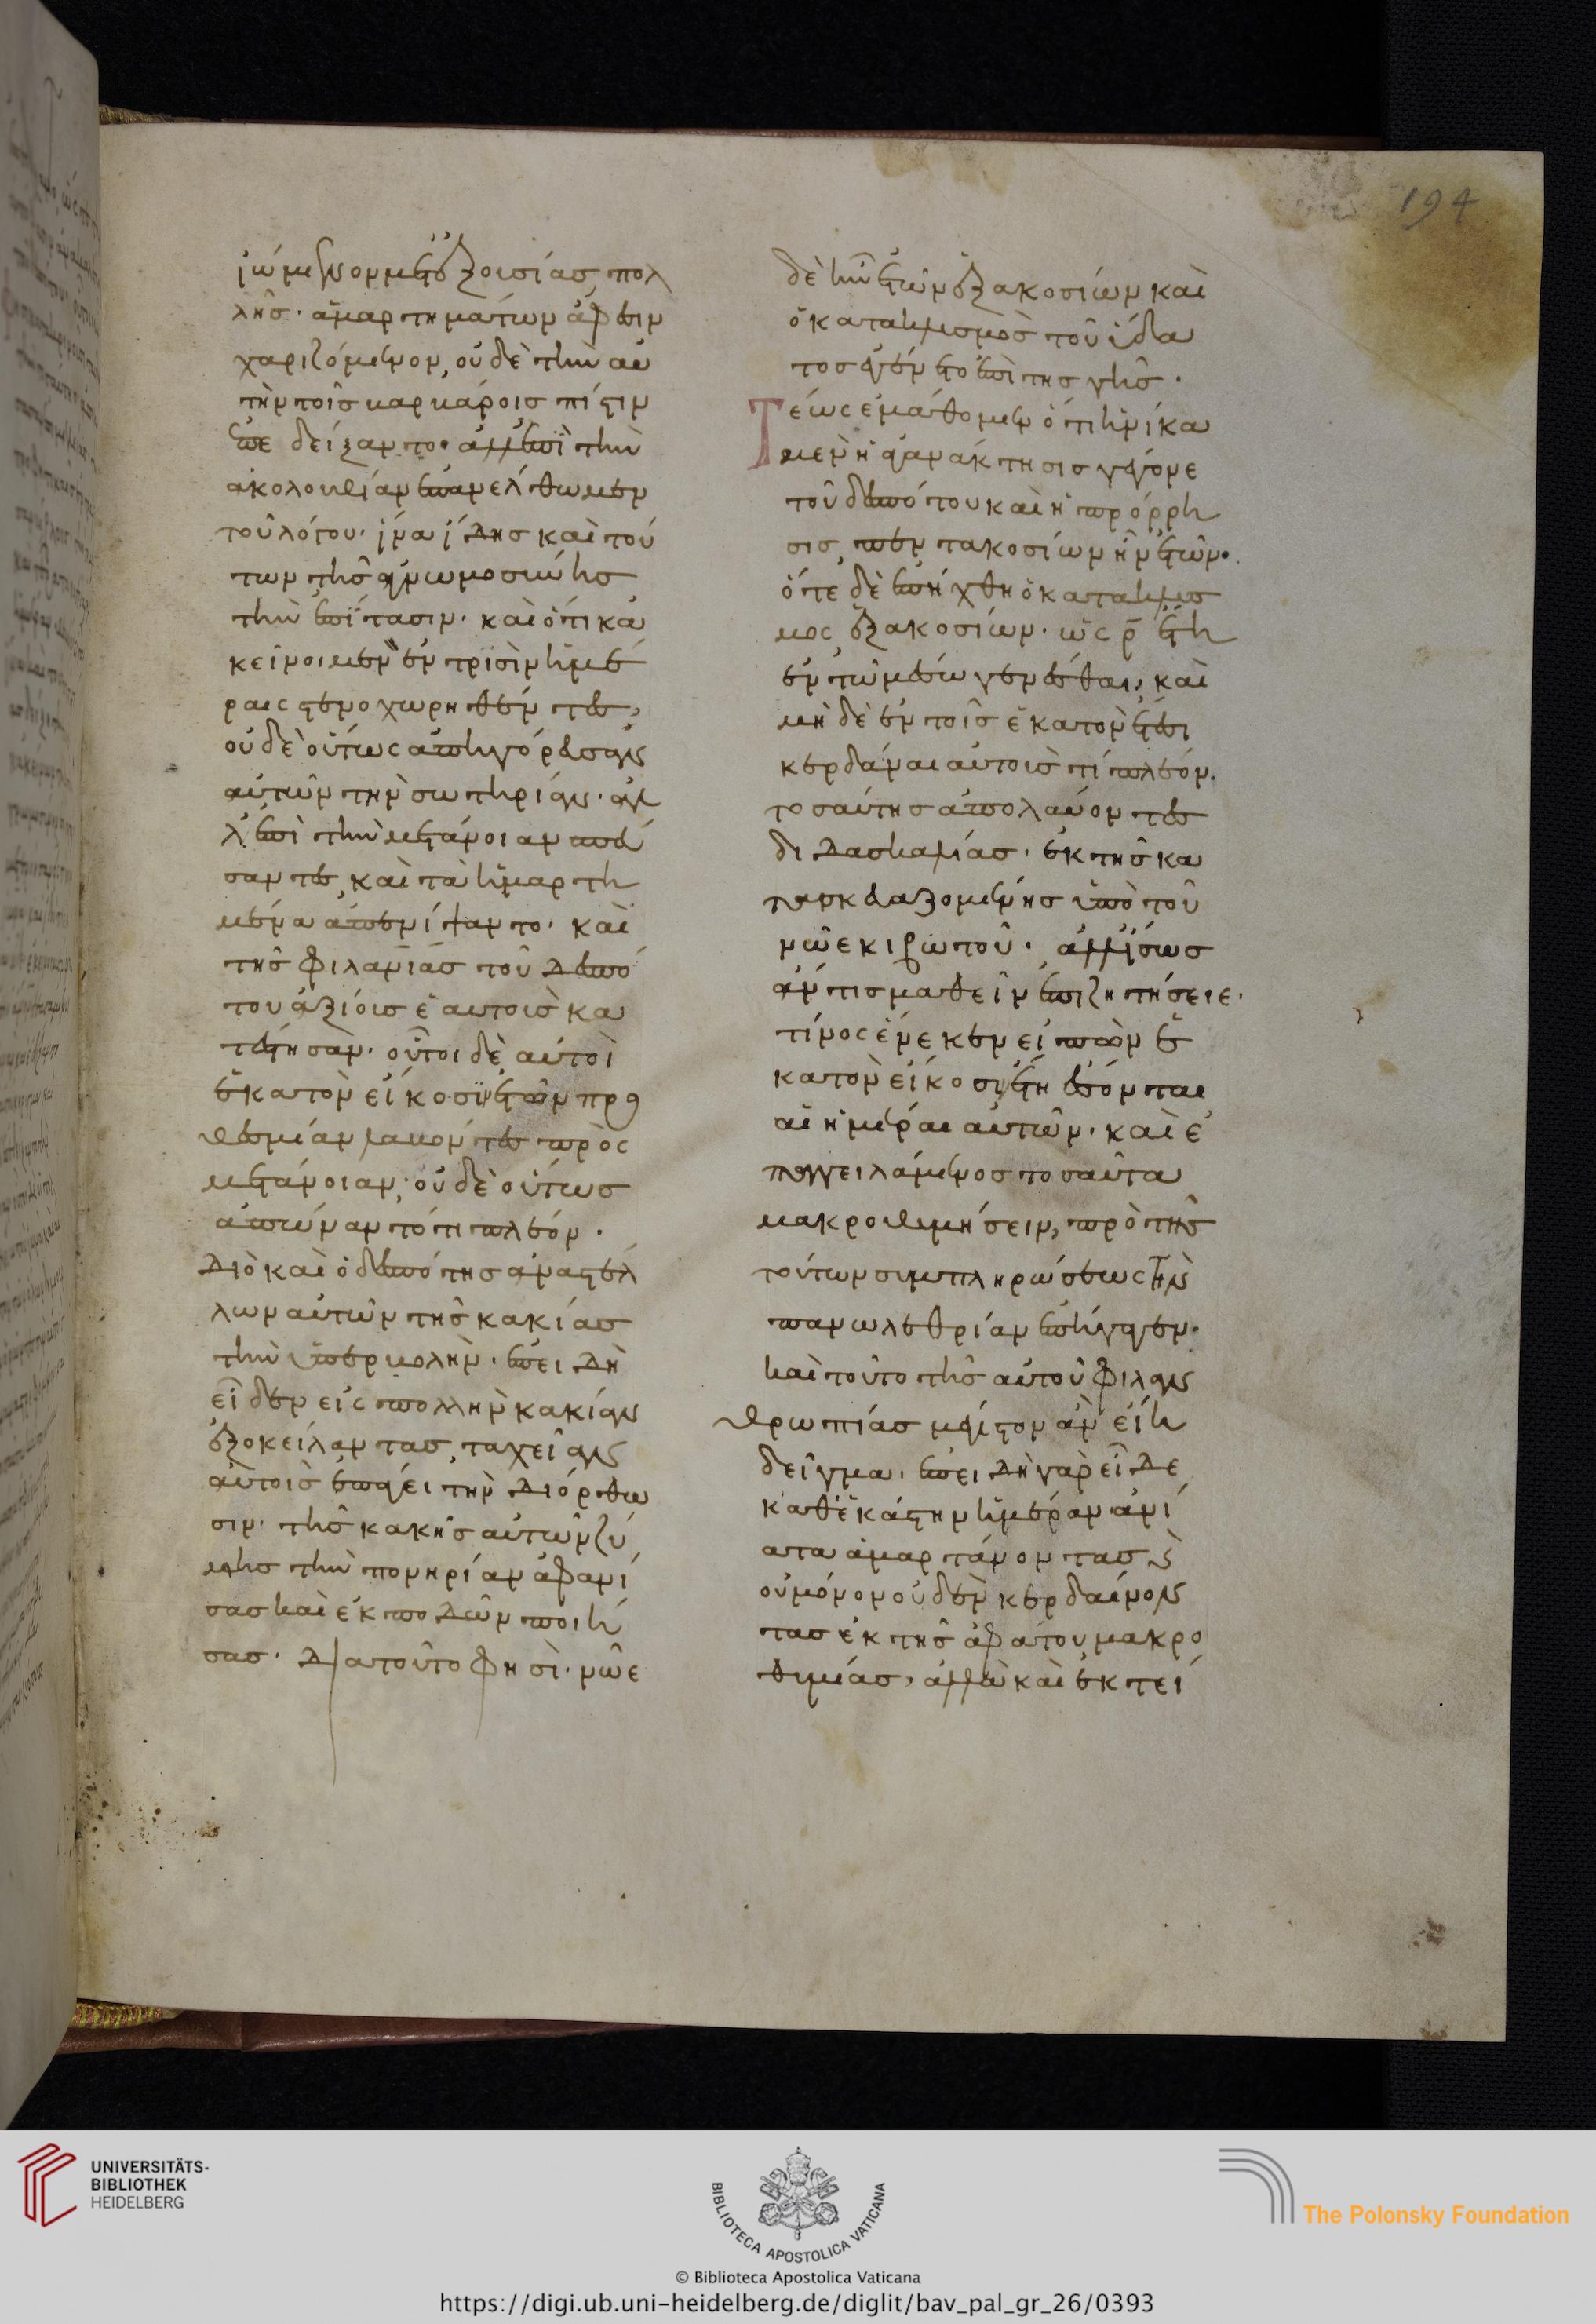 194
ἰώμενον μετεξουσίας πολ
λῆς· ἁμαρτημάτων ἄφεσιν
χαριζόμενον, οὐδὲ τὴν αὐ
τὴν τοῖς βαρβάροις πίστιν
ἐπεδείξαντο· ἀλλἐπὶ τὴν
ἀκολουθίαν ἐπανέλθωμεν
τοῦ λόγου· ἵνα ἴδης καὶ τού
των τῆς ἀγνωμοσύνης
τὴν ἐπίτασιν· καὶ ὅτι κἀ
κεῖνοι μὲν ἐν τρισὶν ἡμέ
ραις στενοχωρηθέντες,
οὐδὲ οὕτως ἀπηγόρευσαν
αὐτῶν τὴν σωτηρίαν· ἀλ
λἐπὶ τὴν μετάνοιαν σπεύ
σαντες, καὶ τὰ ἡμαρτη
μένα ἀπενίψαντο· καὶ
τῆς φιλανίας τοῦ δεσπό
του ἀξίους ἑαυτοὺς κα
τέστησαν· οὗτοι δὲ αὐτοὶ
ἑκατὸν εἴκοσι ἐτῶν προ
θεσμίαν λαβόντες πρὸς
μετάνοιαν, οὐδὲ οὕτως
ἀπώναντό τι πλέον·
Διὸ καὶ ὁ δεσπότης ἀναστέλ
λων αὐτῶν τῆς κακίας
τὴν ὑπερβολὴν· ἐπειδὴ
εἶδεν εἰς πολλὴν κακίαν
ἐξοκείλαντας, ταχεῖαν
αὐτοῖς ἐπάγει τὴν διόρθω
σιν· τῆς κακῆς αὐτῶν ζύ
μης τὴν πονηρίαν ἀφανί
σας καὶ ἐκποδῶν ποιή
σας· Διατοῦτο φησὶ· νῶε
δὲ ἦν ἐτῶν ἐξακοσίων καὶ
ὁ κατακλυσμὸς τοῦ ὕδα
τος ἐγένετο ἐπὶ τῆς γῆς·
Τέως ἐμάθομεν ὅτι ἡνίκα
μὲν ἡ ἀγανάκτησις γέγονε
τοῦ δεσπότου καὶ ἡ πρόρρη
σις, πεντακοσίων ἦν ἐτῶν·
ὅτε δὲ ἐπήχθη ὁ κατακλυσ
μος ἐξακοσίων· ὡς ρ̄ ἔτη
ἐν τῶ μέσω γενέσθαι, καὶ
μὴ δὲ ἐν τοῖς ἑκατὸν ἔτεσι
κερδάναι αὐτοὺς τί πλέον.
τοσαύτης ἀπολαύοντες
διδασκαλίας· ἐκ τῆς κα
τασκευαζομένης ὑπὸ τοῦ
νῶε κιβωτοῦ· ἀλλἴσως
ἄν τις μαθεῖν ἐπιζητήσειε·
τίνος ἕνεκεν εἰπὼν ἑ
κατὸν εἴκοσι ἔτη ἔσονται
αἱ ἡμέραι αὐτῶν· καὶ ἐ
παγγειλάμενος τοσαῦτα
μακροθυμήσειν, πρὸ τῆς
τούτων συμπληρώσεως τὴν
πανωλεθρίαν ἐπήγαγεν·
καὶ τοῦτο τῆς αὐτοῦ φιλαν
θρωπίας μέγιστον ἂν εἴη
δεῖγμα· ἐπειδὴ γὰρ εἶδε
καθἑκάστην ἡμέραν ἀνί
ατα ἁμαρτάνοντας καὶ
οὐμόνον οὐδὲν κερδαίνον
τας ἐκ τῆς ἀφάτου μακρο
θυμίας, ἀλλὰ καὶ ἐκτεί
UNIVERSITÄTS-
BIBLIOTHEK
HEIDELBERG
BIBLIOTECA APOSTOLICA VATICANA
The Polonsky Foundation
© Biblioteca Apostolica Vaticana
https://digi.ub.uni-heidelberg.de/diglit/bav_pal_gr_26/0393